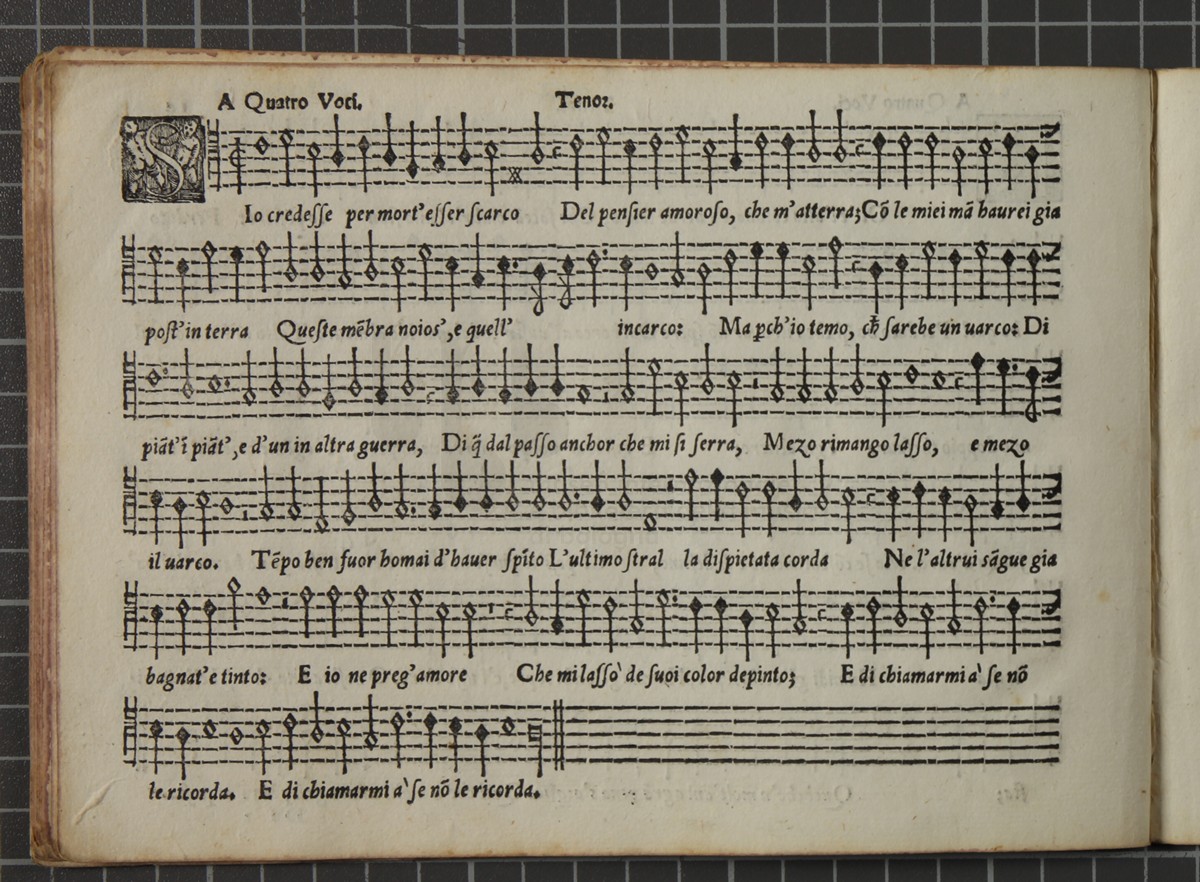 A Quatro Voci. Tenor.
SIo credesse per mort'esser scarco Del pensier amoroso, che m'atterra; Cō le miei mā haurei gia
post' in terra Queste mēbra noios', e quell' incarco: Ma ꝑch'io temo, ch̄ sarebe un uarco: Di
piāt' ī piāt', e d'un in altra guerra, Di q̄ dal passo anchor che mi si serra, Mezo rimango lasso, e mezo
il uarco. Tēpo ben fuor homai d'hauer spīto L'ultimo stral la dispietata corda Ne l'altrui sāgue gia
bagnat'e tinto: E io ne preg'amore Che mi lassò de suoi color depinto; E di chiamarmi à se nō
le ricorda. E di chiamarmi à se nō le ricorda.